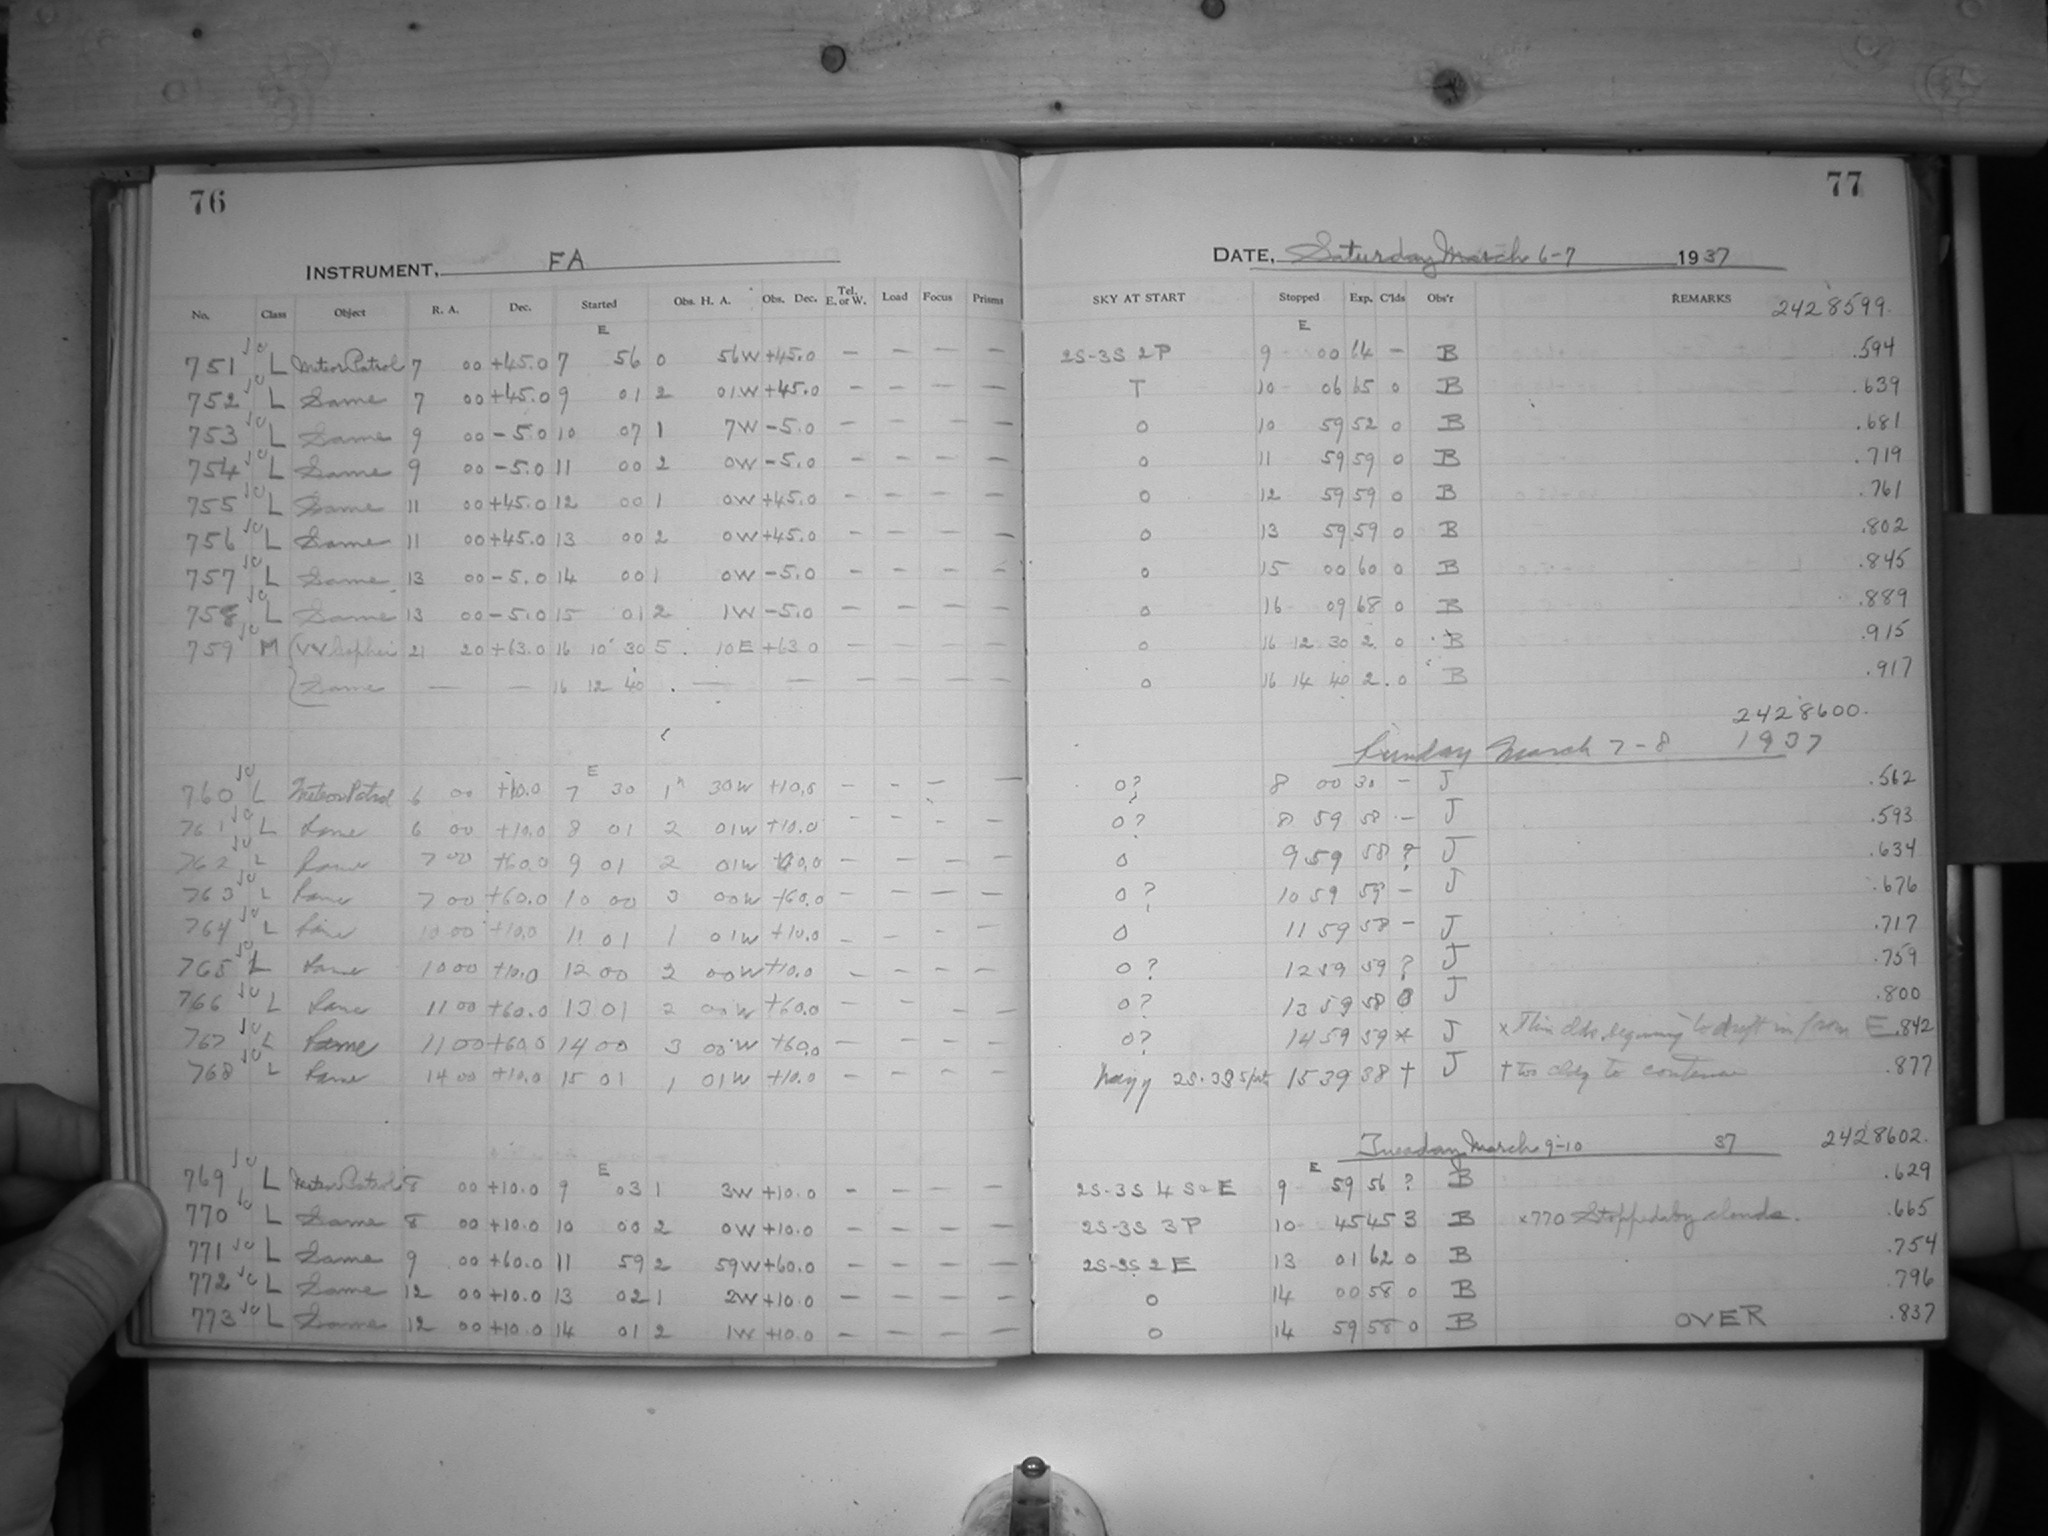 76
77
INSTRUMENT, FA
DATE, Saturday March 6-7 1937
No. Class Object R. A. Dec. Started Obs. H. A. Obs. Dec. Tel. E. or W. Load Focus Prisms SKY AT START Stopped Exp. C'lds Obs'r REMARKS 2428599.
E E
751 10 L Meteor Patrol 7 00 +45.0 7 56 0 56W +45.0 — — — — 2S-3S 2P 9 00 64 — B .594
752 10 L Same 7 00 +45.0 9 01 2 01W +45.0 — — — — T 10 06 65 0 B .639
753 10 L Same 9 00 -5.0 10 07 1 7W -5.0 — — — — 0 10 59 52 0 B .681
754 10 L Same 9 00 -5.0 11 00 2 0W -5.0 — — — — 0 11 59 59 0 B .719
755 10 L Same 11 00 +45.0 12 00 1 0W +45.0 — — — — 0 12 59 59 0 B .761
756 10 L Same 11 00 +45.0 13 00 2 0W +45.0 — — — — 0 13 59 59 0 B .802
757 10 L Same 13 00 -5.0 14 00 1 0W -5.0 — — — — 0 15 00 60 0 B .845
758 10 L Same 13 00 -5.0 15 01 2 1W -5.0 — — — — 0 16 09 68 0 B .889
759 10 M VV Cephei 21 20 +63.0 16 10 30 5 10E +63.0 — — — — 0 16 12 30 2 0 B .915
Same — — 16 12 40 — — — — — — 0 16 14 40 2 0 B .917
2428600.
Sunday March 7-8 1937
E
760 10 L Meteor Patrol 6 00 +10.0 7 30 1h 30W +10.0 — — — — 0? 8 00 30 — J .562
761 10 L Same 6 00 +10.0 8 01 2 01W +10.0 — — — — 0? 8 59 58 — J .593
762 10 L Same 7 00 +60.0 9 01 2 01W +60.0 — — — — 0 9 59 58 ? J .634
763 10 L Same 7 00 +60.0 10 00 3 00W +60.0 — — — — 0? 10 59 59 — J .676
764 10 L Same 10 00 +10.0 11 01 1 01W +10.0 — — — — 0 11 59 58 — J .717
765 10 L Same 10 00 +10.0 12 00 2 00W +10.0 — — — — 0? 12 59 59 ? J .759
766 10 L Same 11 00 +60.0 13 01 2 00W +60.0 — — — — 0? 13 59 58 0 J .800
767 10 L Same 11 00 +60.0 14 00 3 00W +60.0 — — — — 0? 14 59 59 * J × Thin clds. beginning to drift in from E .842
768 10 L Same 14 00 +10.0 15 01 1 01W +10.0 — — — — hazy 2S-3S 15 39 38 † J † too cldy to continue .877
Tuesday March 9-10 37 2428602.
E E
769 10 L Meteor Patrol 8 00 +10.0 9 03 1 3W +10.0 — — — — 2S-3S 4 S&E 9 59 56 ? B .629
770 10 L Same 8 00 +10.0 10 00 2 0W +10.0 — — — — 2S-3S 3P 10 45 45 3 B ×770 Stopped by clouds. .665
771 10 L Same 9 00 +60.0 11 59 2 59W +60.0 — — — — 2S-3S 2E 13 01 62 0 B .754
772 10 L Same 12 00 +10.0 13 02 1 2W +10.0 — — — — 0 14 00 58 0 B .796
773 10 L Same 12 00 +10.0 14 01 2 1W +10.0 — — — — 0 14 59 58 0 B OVER .837